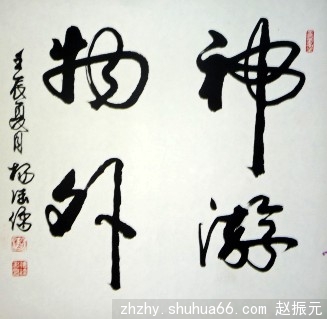 神游
物外
壬辰夏月
zhzhy.shuhua66.com 赵振元